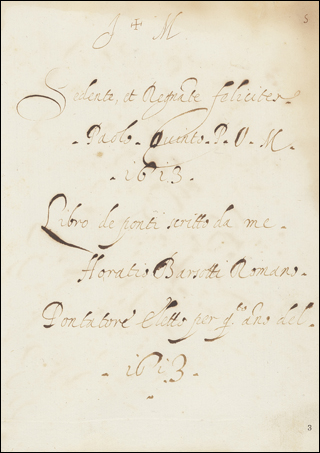 5
J + M.
Sedente, et Regnate feliciter
- Paolo - Quinto - P. O. M. -
- 1613. -
Libro de ponti scritto da me -
Horatio Barsotti Romano -
Pontatore eletto per q.to ano del -
- 1613 -
3